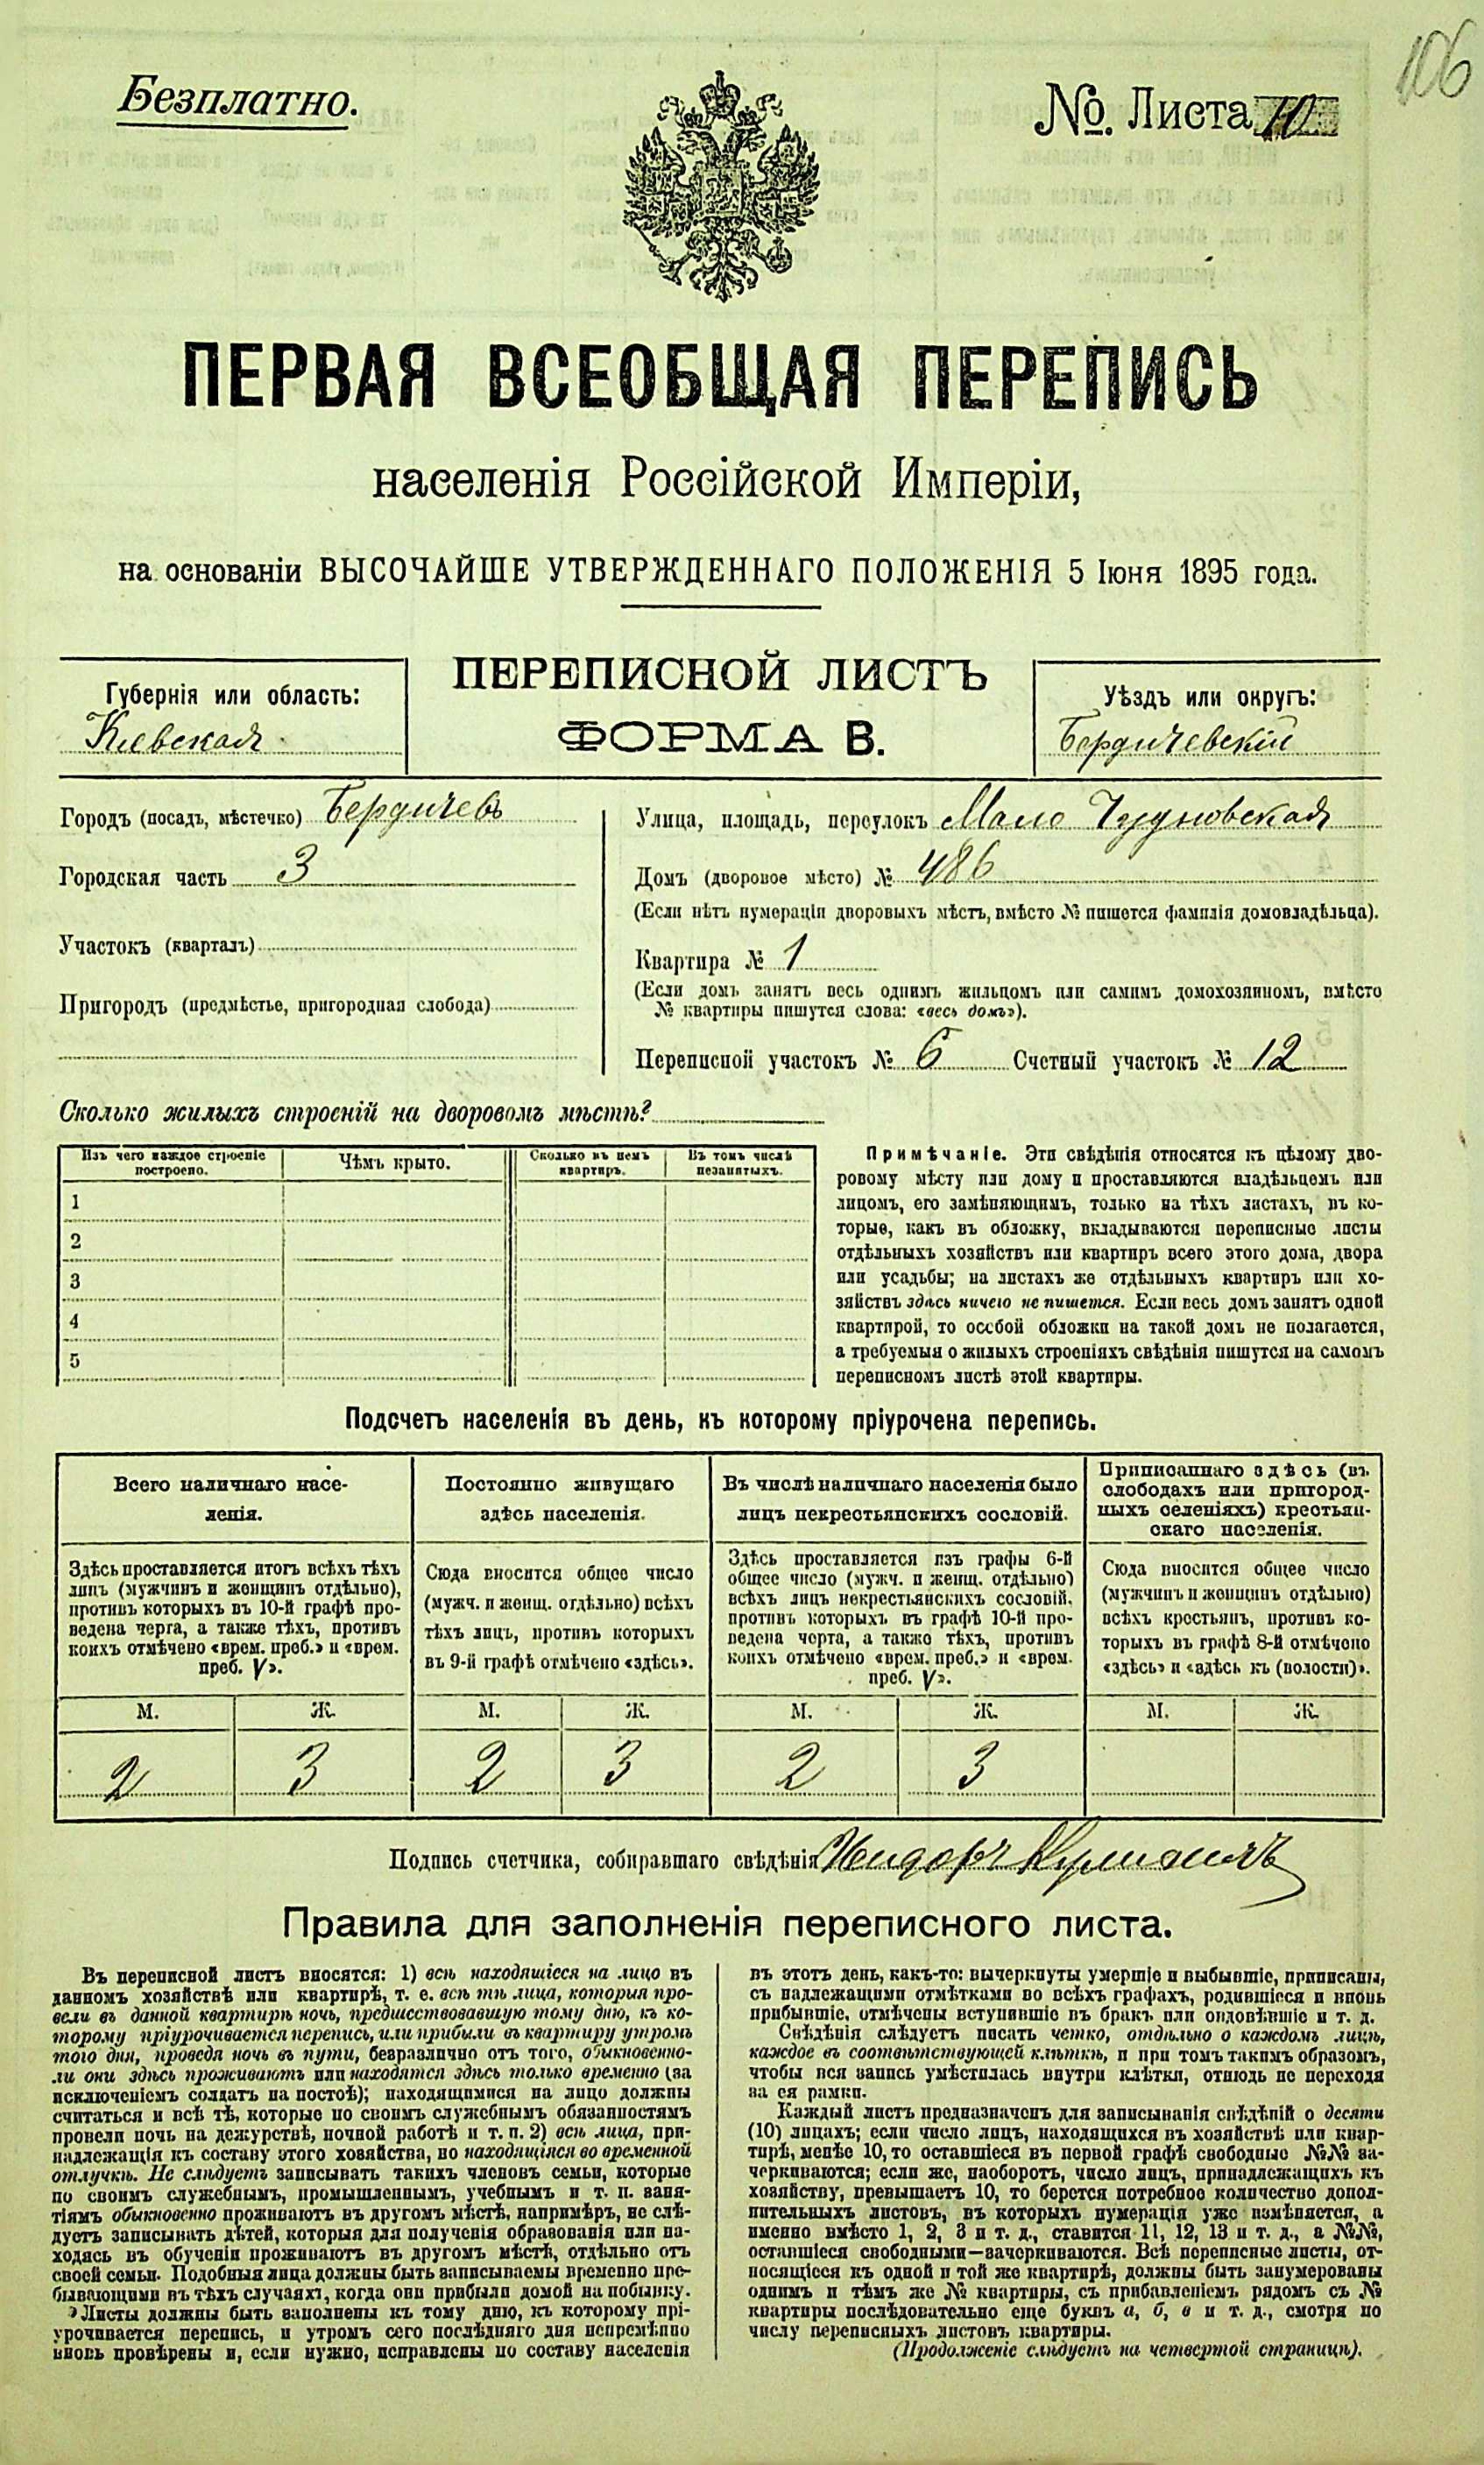 106
Безплатно.
№. Листа 10
ПЕРВАЯ ВСЕОБЩАЯ ПЕРЕПИСЬ
населенія Россійской Имперіи,
на основаніи ВЫСОЧАЙШЕ УТВЕРЖДЕННАГО ПОЛОЖЕНІЯ 5 Іюня 1895 года.
ПЕРЕПИСНОЙ ЛИСТЪ
ФОРМА В.
Губернія или область:
Кіевская
Уѣздъ или округъ:
Бердичевскій
Городъ (посадъ, мѣстечко) Бердичевъ
Городская часть 3
Участокъ (кварталъ)
Пригородъ (предмѣстье, пригородная слобода)
Улица, площадь, переулокъ Мало Чудновская
Домъ (дворовое мѣсто) № 486
(Если нѣтъ нумераціи дворовыхъ мѣстъ, вмѣсто № пишется фамилія домовладѣльца).
Квартира № 1
(Если домъ занятъ весь однимъ жильцомъ или самимъ домохозяиномъ, вмѣсто
№ квартиры пишутся слова: «весь домъ»).
Переписной участокъ № 6 Счетный участокъ № 12
Сколько жилыхъ строеній на дворовомъ мѣстѣ?
Изъ чего каждое строеніе
построено.
Чѣмъ крыто.
Сколько въ немъ
квартиръ.
Въ томъ числѣ
незанятыхъ.
1
2
3
4
5
Примѣчаніе. Эти свѣдѣнія относятся къ цѣлому дво-
ровому мѣсту или дому и проставляются владѣльцемъ или
лицомъ, его замѣняющимъ, только на тѣхъ листахъ, въ ко-
торые, какъ въ обложку, вкладываются переписные листы
отдѣльныхъ хозяйствъ или квартиръ всего этого дома, двора
или усадьбы; на листахъ же отдѣльныхъ квартиръ или хо-
зяйствъ здѣсь ничего не пишется. Если весь домъ занятъ одной
квартирой, то особой обложки на такой домъ не полагается,
а требуемыя о жилыхъ строеніяхъ свѣдѣнія пишутся на самомъ
переписномъ листѣ этой квартиры.
Подсчетъ населенія въ день, къ которому пріурочена перепись.
Всего наличнаго насе-
ленія.
Здѣсь проставляется итогъ всѣхъ тѣхъ
лицъ (мужчинъ и женщинъ отдѣльно),
противъ которыхъ въ 10-й графѣ про-
ведена черта, а также тѣхъ, противъ
коихъ отмѣчено «врем. преб.» и «врем.
преб. V».
Постоянно живущаго
здѣсь населенія.
Сюда вносится общее число
(мужч. и женщ. отдѣльно) всѣхъ
тѣхъ лицъ, противъ которыхъ
въ 9-й графѣ отмѣчено «здѣсь».
Въ числѣ наличнаго населенія было
лицъ некрестьянскихъ сословій.
Здѣсь проставляется изъ графы 6-й
общее число (мужч. и женщ. отдѣльно)
всѣхъ лицъ некрестьянскихъ сословій,
противъ которыхъ въ графѣ 10-й про-
ведена черта, а также тѣхъ, противъ
коихъ отмѣчено «врем. преб.» и «врем.
преб. V».
Приписаннаго здѣсь (въ
слободахъ или пригород-
ныхъ селеніяхъ) крестьян-
скаго населенія.
Сюда вносится общее число
(мужчинъ и женщинъ отдѣльно)
всѣхъ крестьянъ, противъ ко-
торыхъ въ графѣ 8-й отмѣчено
«здѣсь» и «здѣсь къ (волости)».
М. Ж. М. Ж. М. Ж. М. Ж.
2 3 2 3 2 3
Подпись счетчика, собиравшаго свѣдѣнія
Правила для заполненія переписного листа.
Въ переписной листъ вносятся: 1) всѣ находящіеся на лицо въ
данномъ хозяйствѣ или квартирѣ, т. е. всѣ тѣ лица, которыя про-
вели въ данной квартирѣ ночь, предшествовавшую тому дню, къ ко-
торому пріурочивается перепись, или прибыли въ квартиру утромъ
того дня, проведя ночь въ пути, безразлично отъ того, обыкновенно-
ли они здѣсь проживаютъ или находятся здѣсь только временно (за
исключеніемъ солдатъ на постоѣ); находящимися на лицо должны
считаться и всѣ тѣ, которые по своимъ служебнымъ обязанностямъ
провели ночь на дежурствѣ, ночной работѣ и т. п. 2) всѣ лица, при-
надлежащія къ составу этого хозяйства, но находящіяся во временной
отлучкѣ. Не слѣдуетъ записывать такихъ членовъ семьи, которые
по своимъ служебнымъ, промышленнымъ, учебнымъ и т. п. заня-
тіямъ обыкновенно проживаютъ въ другомъ мѣстѣ, напримѣръ, не слѣ-
дуетъ записывать дѣтей, которыя для полученія образованія или на-
ходясь въ обученіи проживаютъ въ другомъ мѣстѣ, отдѣльно отъ
своей семьи. Подобныя лица должны быть записываемы временно пре-
бывающими въ тѣхъ случаяхъ, когда они прибыли домой на побывку.
Листы должны быть заполнены къ тому дню, къ которому прі-
урочивается перепись, и утромъ сего послѣдняго дня непремѣнно
вновь провѣрены и, если нужно, исправлены по составу населенія
въ этотъ день, какъ-то: вычеркнуты умершіе и выбывшіе, приписаны,
съ надлежащими отмѣтками во всѣхъ графахъ, родившіеся и вновь
прибывшіе, отмѣчены вступившіе въ бракъ или овдовѣвшіе и т. д.
Свѣдѣнія слѣдуетъ писать четко, отдѣльно о каждомъ лицѣ,
каждое въ соотвѣтствующей клѣткѣ, и при томъ такимъ образомъ,
чтобы вся запись умѣстилась внутри клѣтки, отнюдь не переходя
за ея рамки.
Каждый листъ предназначенъ для записыванія свѣдѣній о десяти
(10) лицахъ; если число лицъ, находящихся въ хозяйствѣ или квар-
тирѣ, менѣе 10, то оставшіеся въ первой графѣ свободные №№ за-
черкиваются; если же, наоборотъ, число лицъ, принадлежащихъ къ
хозяйству, превышаетъ 10, то берется потребное количество допол-
нительныхъ листовъ, въ которыхъ нумерація уже измѣняется, а
именно вмѣсто 1, 2, 3 и т. д., ставится 11, 12, 13 и т. д., а №№,
оставшіеся свободными—зачеркиваются. Всѣ переписные листы, от-
носящіеся къ одной и той же квартирѣ, должны быть занумерованы
однимъ и тѣмъ же № квартиры, съ прибавленіемъ рядомъ съ №
квартиры послѣдовательно еще буквъ а, б, в и т. д., смотря по
числу переписныхъ листовъ квартиры.
(Продолженіе слѣдуетъ на четвертой страницѣ).